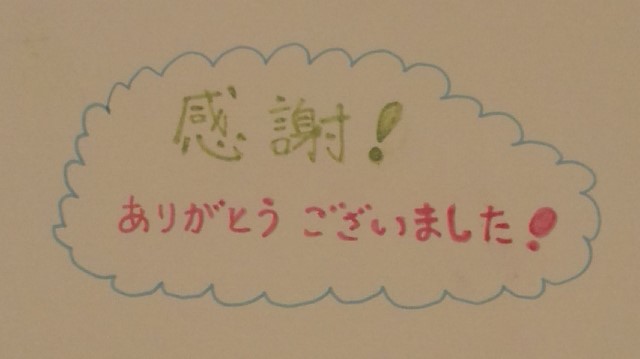 感謝!
ありがとうございました!